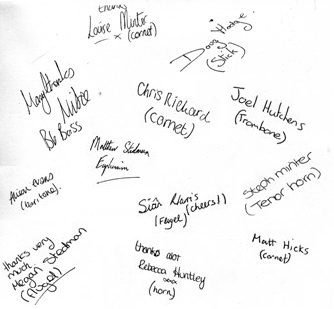 Louise Minter
x (cornet)
Doug Hodge
(Stick)
Many thanks
Mike
Bb Bass
Chris Richard
(Cornet)
Joel Hutchens
(Trombone)
Matthew Stedman
Euphonium
evans
Siân Harris
(Flugel) (cheers!)
Steph Minter
(Tenor horn)
thanks very
much
Megan Stedman
(Flugel)
thanks alot
Rebecca Huntley
xxxx
(horn)
Matt Hicks
(cornet)